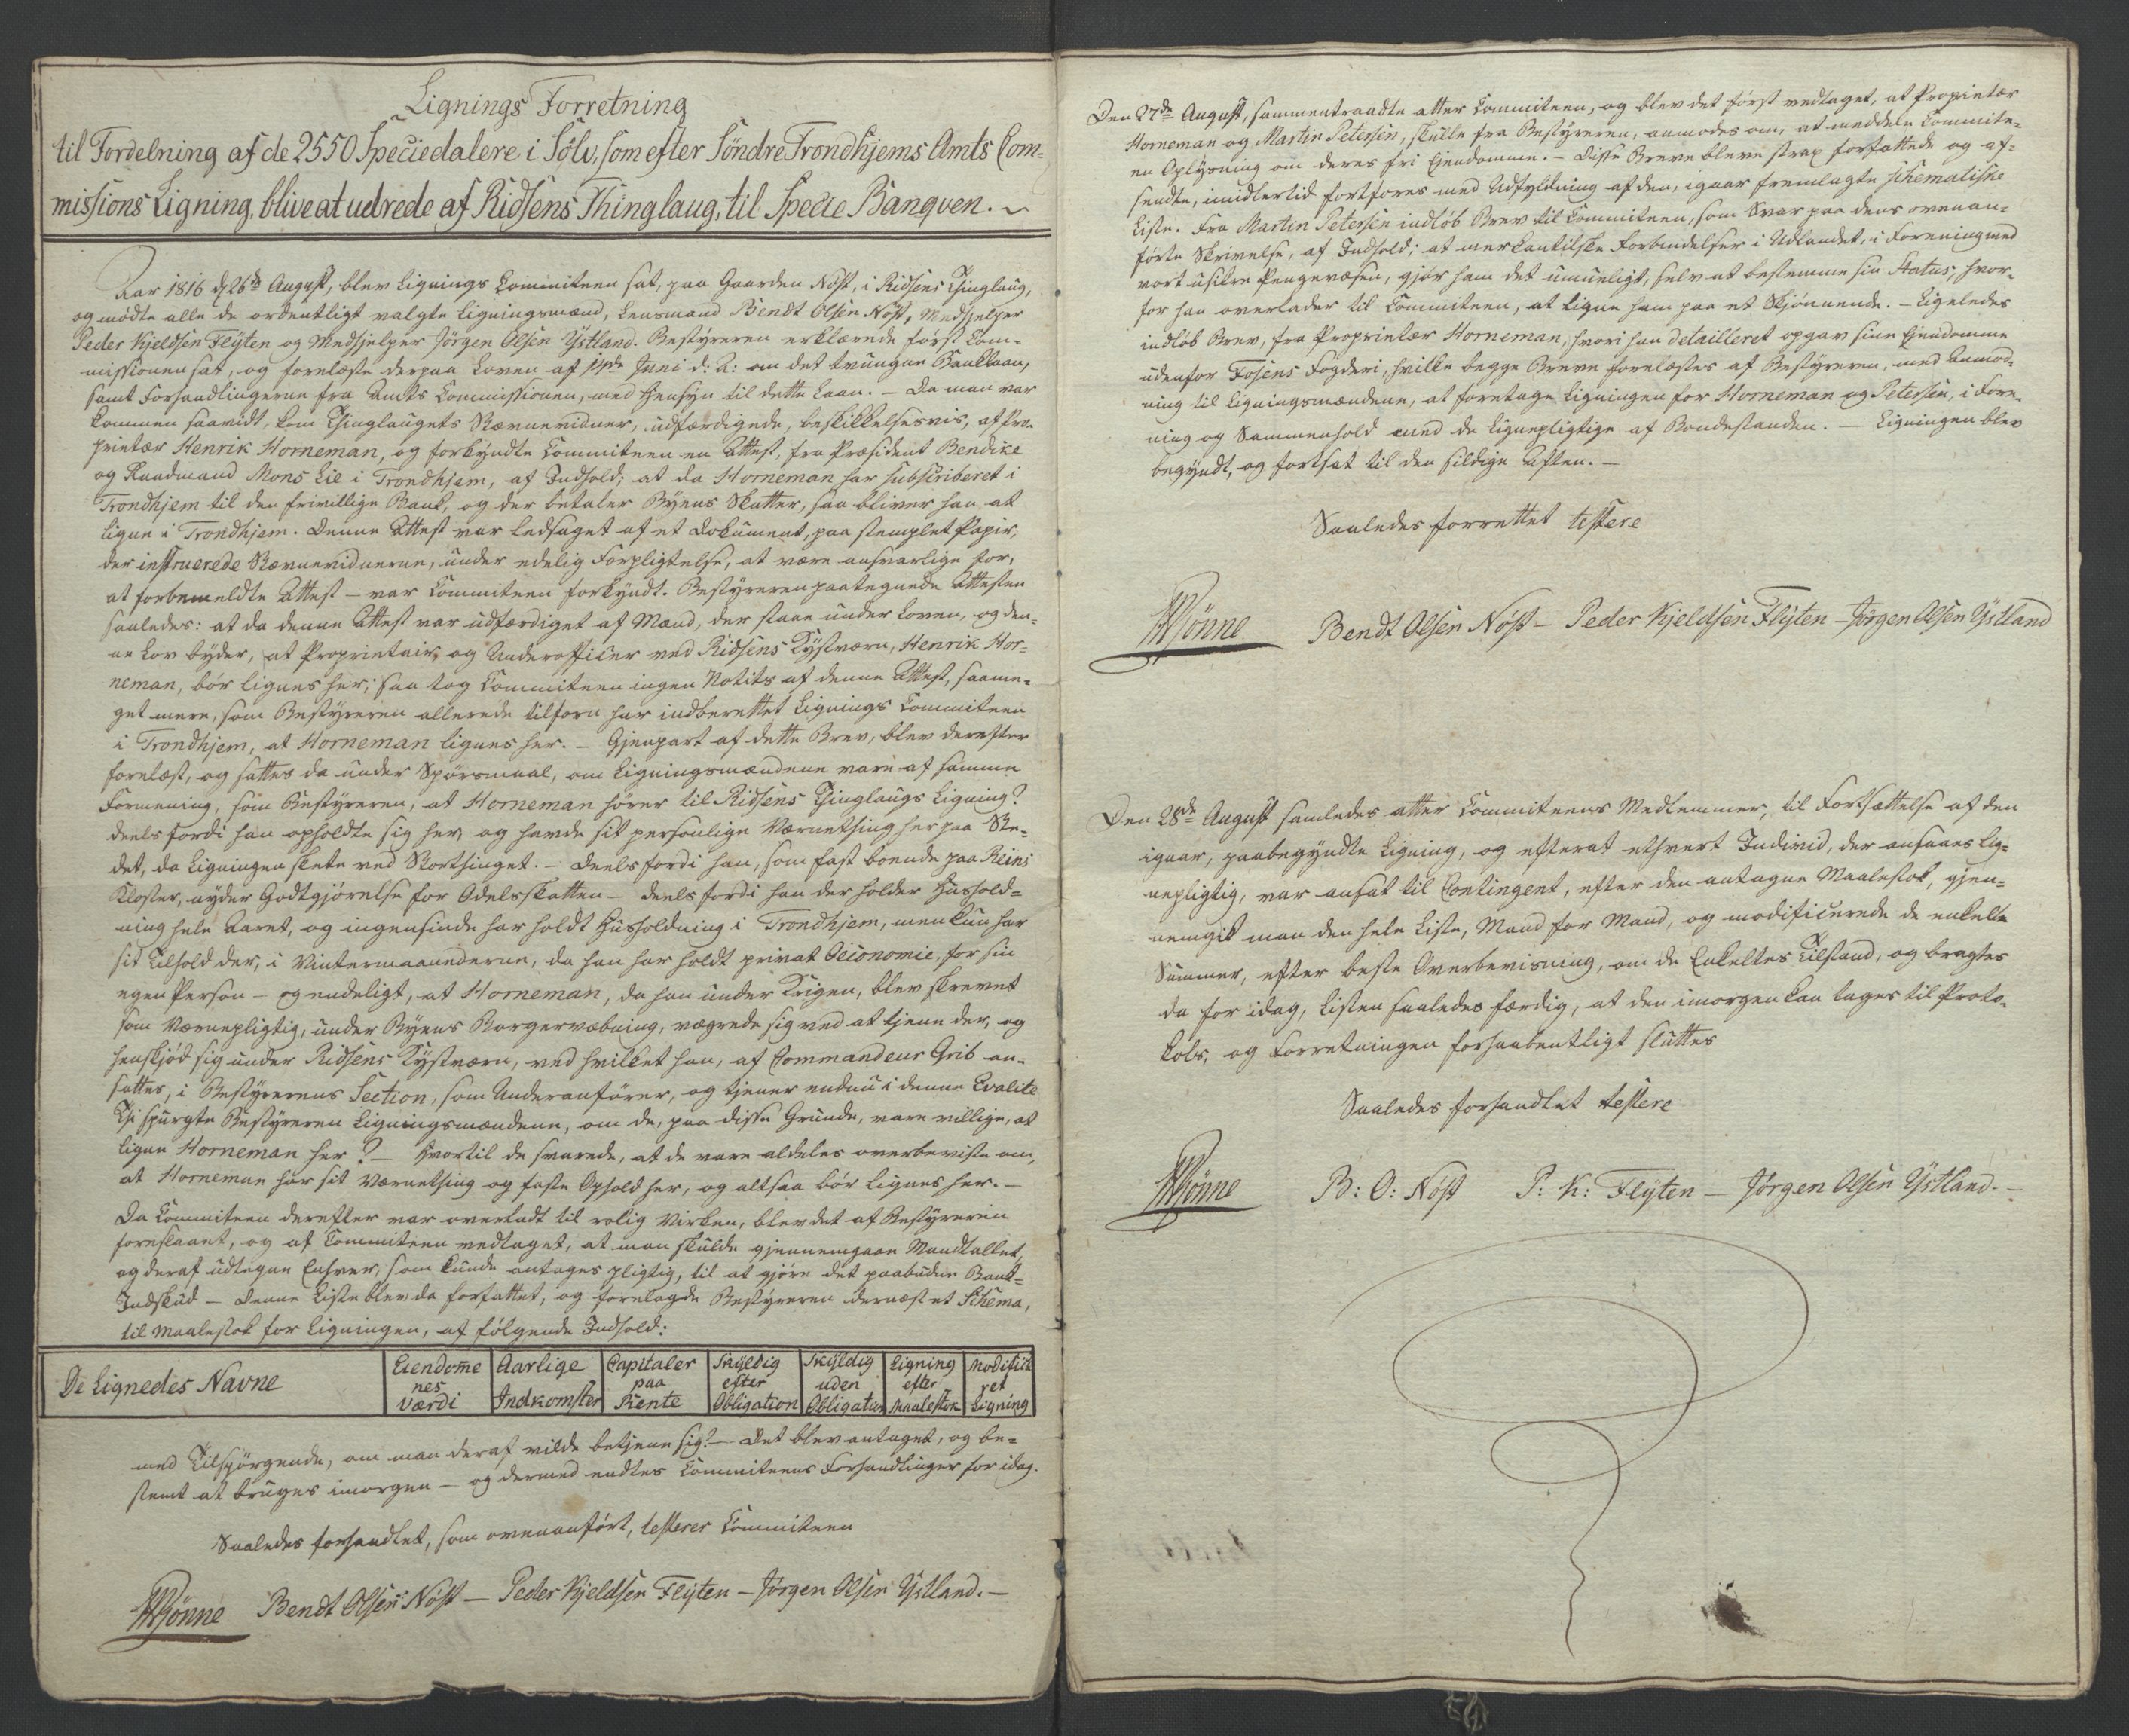 Lignings Forretning
til Fordelning af de 2550 Speciedalere i Sölv, som efter Söndre Trondhjems Amts Com-
missions Ligning, blive at udrede af Ridsens Thinglaug, til Specie Banqven. ~
Aar 1816 d 26de August, blev Lignings Committeen sat, paa Gaarden Nöst, i Ridsens Thinglaug,
og mödte alle de ordentligt valgte Ligningsmænd, Lensmand Bendt Olsen Nöst, Medhjelper
Peder Kjeldsen Flÿten og Medhjelper Jörgen Olsen Ÿstland. Bestÿreren erklærede först Com-
missionen sat, og forelæste derpaa Loven af 14de Juni d: A: om det tvungne Banklaan,
samt Forhandlingerne fra Amts Commissionen, med Hensyn til dette Laan. - Da man var
kommen saavidt, kom Thinglaugets Stævnevidner, udfærdigede, beskikkelsesvis, af Pro-
prietær Henrik Horneman, og forkÿndte Committeen en Attest, fra Præsident Bendike
og Raadmand Mons Lie i Trondhjem, af Indhold; at da Horneman har subscriberet i
Trondhjem til den frivillige Bank, og der betaler Bÿens Skatter, saa bliver han at
ligne i Trondhjem. Denne Attest var ledsaget af et Dokument, paa stemplet Papir,
der instruerede Stævnevidnerne, under edelig Forpligtelse, at være ansvarlige for,
at forbemeldte Attest - var Committeen forkÿndt. Bestÿreren paategnede Attesten
saaledes: at da denne Attest var udfærdiget af Mænd, der staae under Loven, og den-
ne Lov bÿder, at Proprietair, og Underofficer ved Ridsens Kÿstværn, Henrik Hor-
neman, bör lignes her; saa tog Committeen ingen Notits af denne Attest, saame-
get mere, som Bestÿreren allerede tilforn har indberettet Lignings Committeen
i Trondhjem, at Horneman lignes her. - Gjenpart af dette Brev, blev derefter
forelæst, og sattes da under Spörsmaal, om Ligningsmændene vare af samme
Formening, som Bestÿreren, at Horneman hörer til Ridsens Thinglaugs Ligning?
deels fordi han opholdte sig her, og havde sit personlige Værnething her paa Ste-
det, da Ligningen skete ved Storthinget. - Deels fordi han, som fast boende paa Reins
Kloster, nÿder Godtgjörelse for Odelsskatten - deels fordi han der holder Hushold-
ning hele Aaret, og ingensinde har holdt Husholdning i Trondhjem, men kun har
sit Tilhold der, i Vintermaanederne, da han har holdt privat Oeconomie, for sin
egen Person - og endeligt, at Horneman, da han under Krigen, blev skrevet
som Værnepligtig, under Bÿens Borgervæbning, vægrede sig ved at tjene der, og
henskjöd sig under Ridsens Kÿstværn, ved hvilket han, af Commandeur Grib an-
sattes, i Bestÿrerens Section, som Underanförer, og tjener endnu i denne Qvalite
Thi spurgte Bestÿreren Ligningsmændene, om de, paa disse Grunde, vare villige, at
ligne Horneman her? - Hvortil de svarede, at de vare aldeles overbeviste om,
at Horneman har sit Værnething og faste Ophold her, og altsaa bör lignes her. -
Da Committeen derefter var overladt til rolig Virken, blev det af Bestÿreren
foreslaaet, og af Committeen vedtaget, at man skulde gjennemgaae Mandtallet,
og deraf udtegne Enhver, som kunde antages pligtig, til at gjöre det paabudne Bank-
Indskud - Denne Liste blev da forfattet, og forelagde Bestÿreren dernæst et Schema,
til Maalestok for Ligningen, af fölgende Indhold:
De Lignedes Navne
Eiendomme
nes
Værdi
Aarlige
Indkomster
Capitaler
paa
Rente
Skÿldig
efter
Obligation
Skÿldig
uden
Obligation
Ligning
efter
Maalestok
Modifice
ret
Ligning
med Tilspörgende, om man deraf vilde betjene sig? - Det blev antaget, og be-
stemt at bruges imorgen - og dermed endtes Committeens Forhandlinger for idag.
Saaledes forhandlet, som ovenanfört, testerer Committeen
Bendt Olsen Nöst - Peder Kjeldsen Flÿten - Jörgen Olsen Ÿstland. -
Den 27de August, sammentraadte atter Committeen, og blev det först vedtaget, at Proprietær
Horneman og Martin Petersen, skulle fra Bestÿreren, anmodes om, at meddele Committe-
en Oplÿsning om deres fri Eiendomme. - Disse Breve bleve strax forfattede og af-
sendte, imidlertid fortfores med Udfÿldning af den, igaar fremlagte schematiske
Liste. Fra Martin Petersen indlöb Brev til Committeen, som Svar paa dens ovenan-
förte Skrivelse, af Indhold; at mercantilske Forbindelser i Udlandet, i Forening med
vort usikre Pengevæsen, gjör ham det umueligt, selv at bestemme sin Status, hvor-
for han overlader til Committeen, at ligne ham paa et Skjönnende. - Ligeledes
indlöb Brev, fra Proprietær Horneman, hvori han detailleret opgav sine Eiendomme
udenfor Fosens Fogderi, hvilke begge Breve forelæstes af Bestÿreren, med Anmod-
ning til Ligningsmændene, at foretage Ligningen for Horneman og Petersen, i Fore-
ning og Sammenhold med de Lignepligtige af Bondestanden. - Ligningen blev
begÿndt, og fortsat til den sildige Aften. -
Saaledes forrettet testere
Bendt Olsen Nöst - Peder Kjeldsen Flÿten - Jörgen Olsen Ÿstland
Den 28de August samledes atter Committeens Medlemmer, til Fortsættelse af den
igaar, paabegÿndte Ligning, og efterat ethvert Individ, der ansaaes lig-
nepligtig, var ansat til Contingent, efter den antagne Maalestok, gjen-
nemgik man den hele Liste, Mand for Mand, og modificerede de enkelte
Summer, efter beste Overbevisning, om de Enkeltes Tilstand, og bragtes
da for idag, Listen saaledes færdig, at den imorgen kan tages til Proto-
kols, og Forretningen forhaabentligt sluttes
Saaledes forhandlet testere
B: O: Nöst P: K: Flÿten - Jörgen Olsen Ÿstland. -